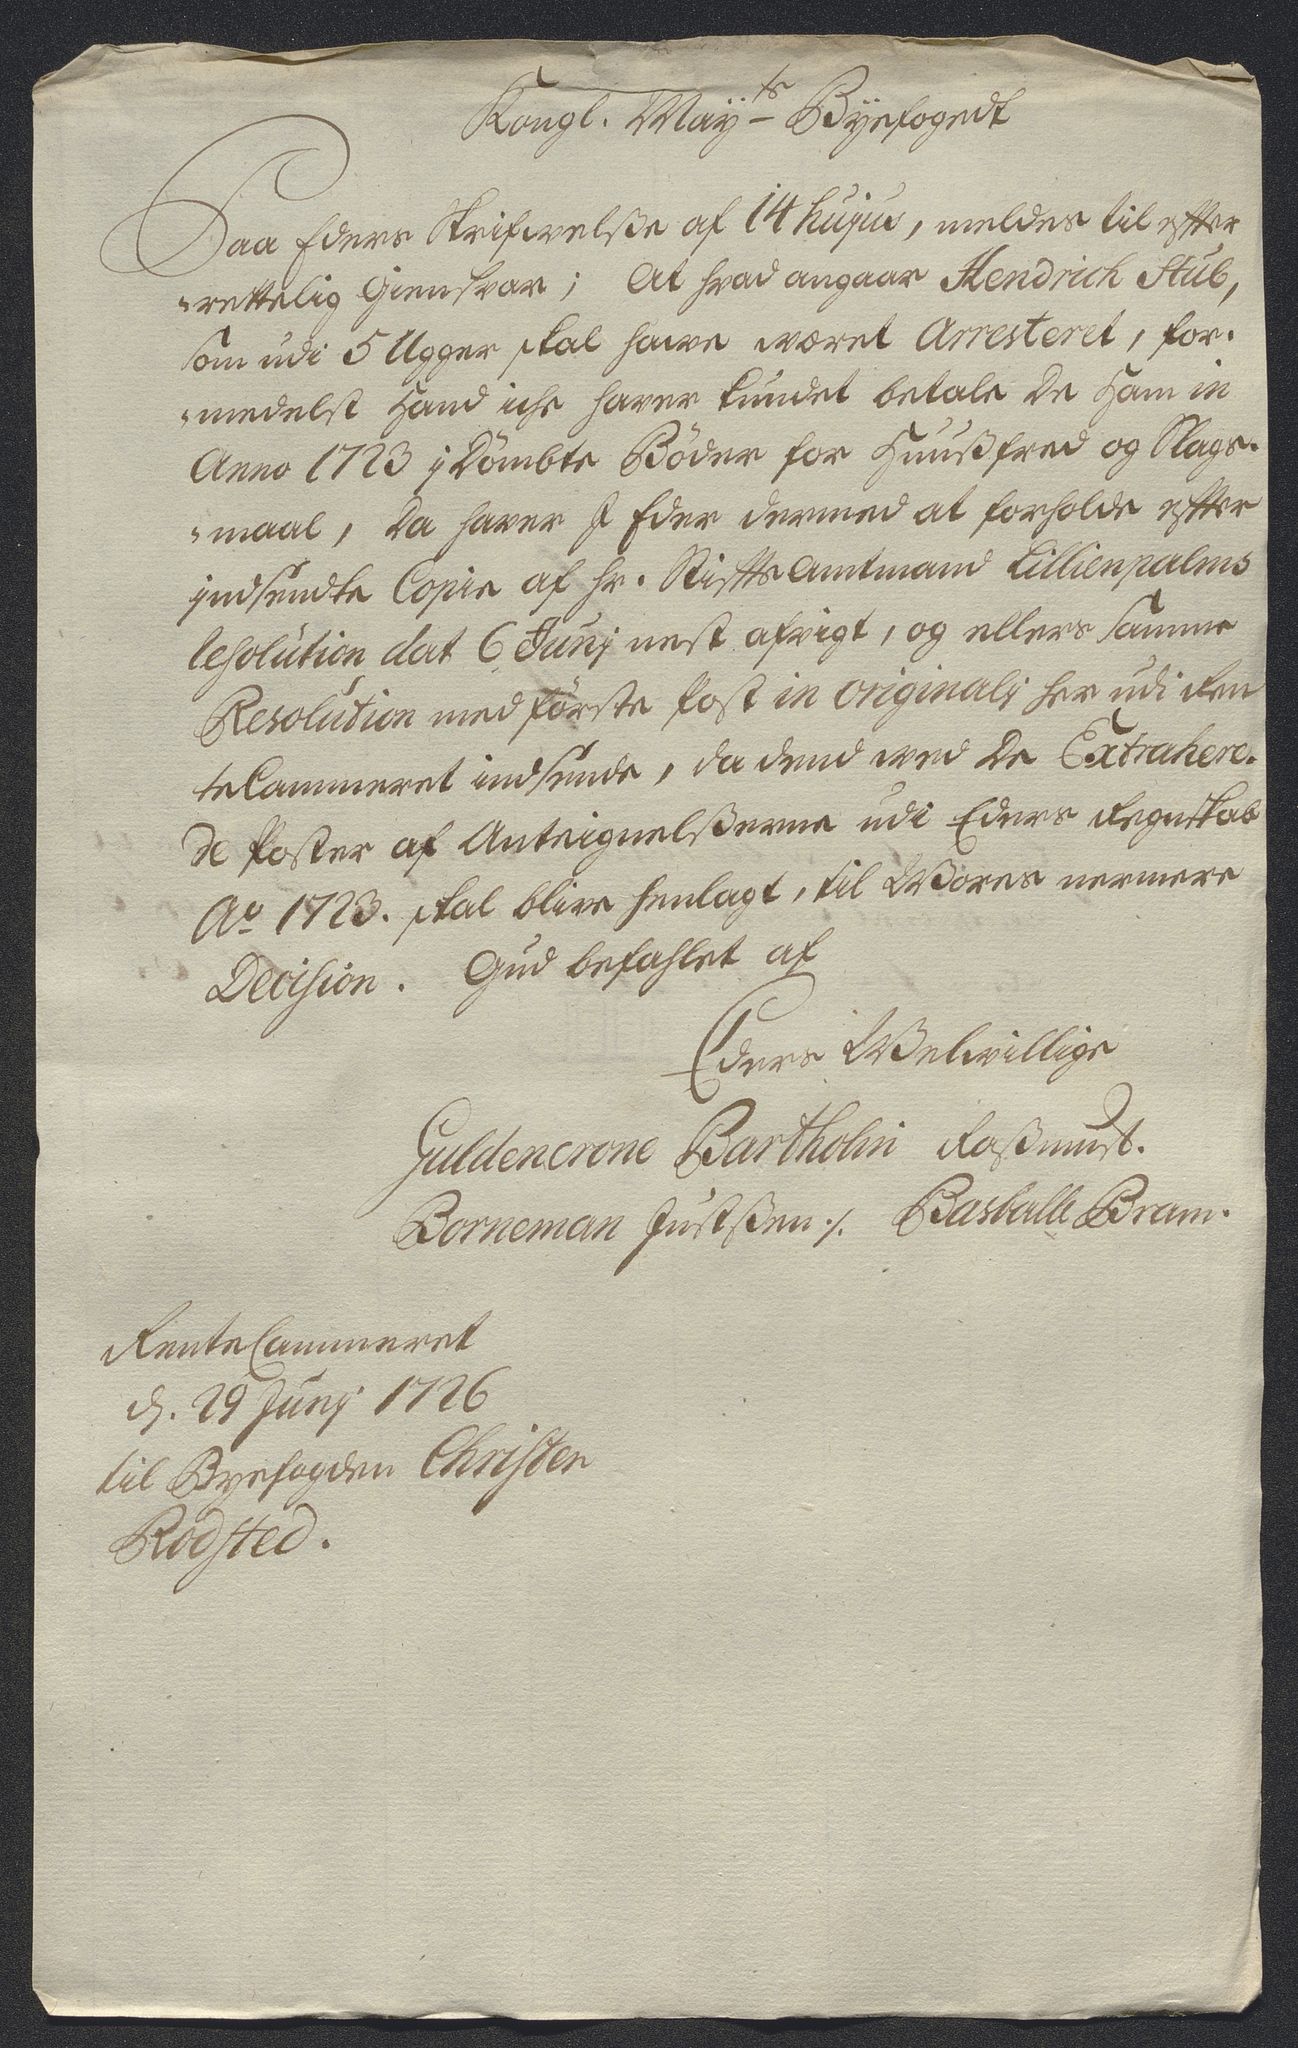 Kongl. Maÿ.ts Bÿefogedt
Paa Eders Skrifwelße af 14 hujus, meldes til effter
-rettelig Giensvar; At hvad angaar Hendrich Stub,
som udi 5 Ugger skal hawe wæret Arresteret, for-
-medelst Hand iche haver kundet betale De Ham in
Anno 1723 jdömbte Böder for Huußfred og Slags-
-maal, Da haver I Eder dermed at forholde effter
jndsendte Copie af Hr. StifftsAmtmand Lillienpalms
Resolution dat 6 Junj nest afvigt, og ellers samme
Resolution med förste Post in originalj her udi Ren
teCammeret indsende, da dend wed De Extrahere-
de Poster af Anteignelßerne udi Eders Regnskab
Ao 1723. skal blive henlagt, til Wores nermere
Decision. Gud befahlet af
Eders Welwillige
Guldencrone Bartholin Raßmusß.
Borneman Justßen ./. Basballe Bram.
RenteCammeret
d. 29 Junj 1726
til Byefogden Christen
Rodsted.